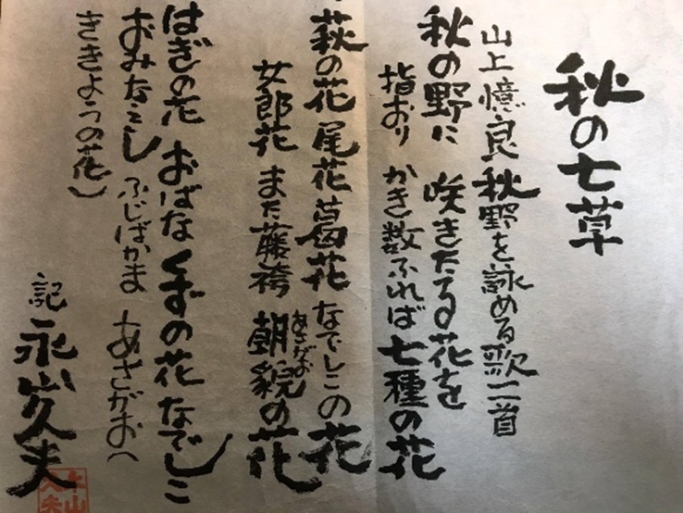 秋の七草
山上憶良 秋野を詠める歌二首
秋の野に 咲きたる花を
指おり かき数ふれば 七種の花
萩の花 尾花 葛花 なでしこの花
女郎花 また藤袴 朝貌の花
あさがお
はぎの花 おばな くずの花 なでしこ
おみなえし ふじばかま あさがおへ
ききようの花)
記 永山久夫